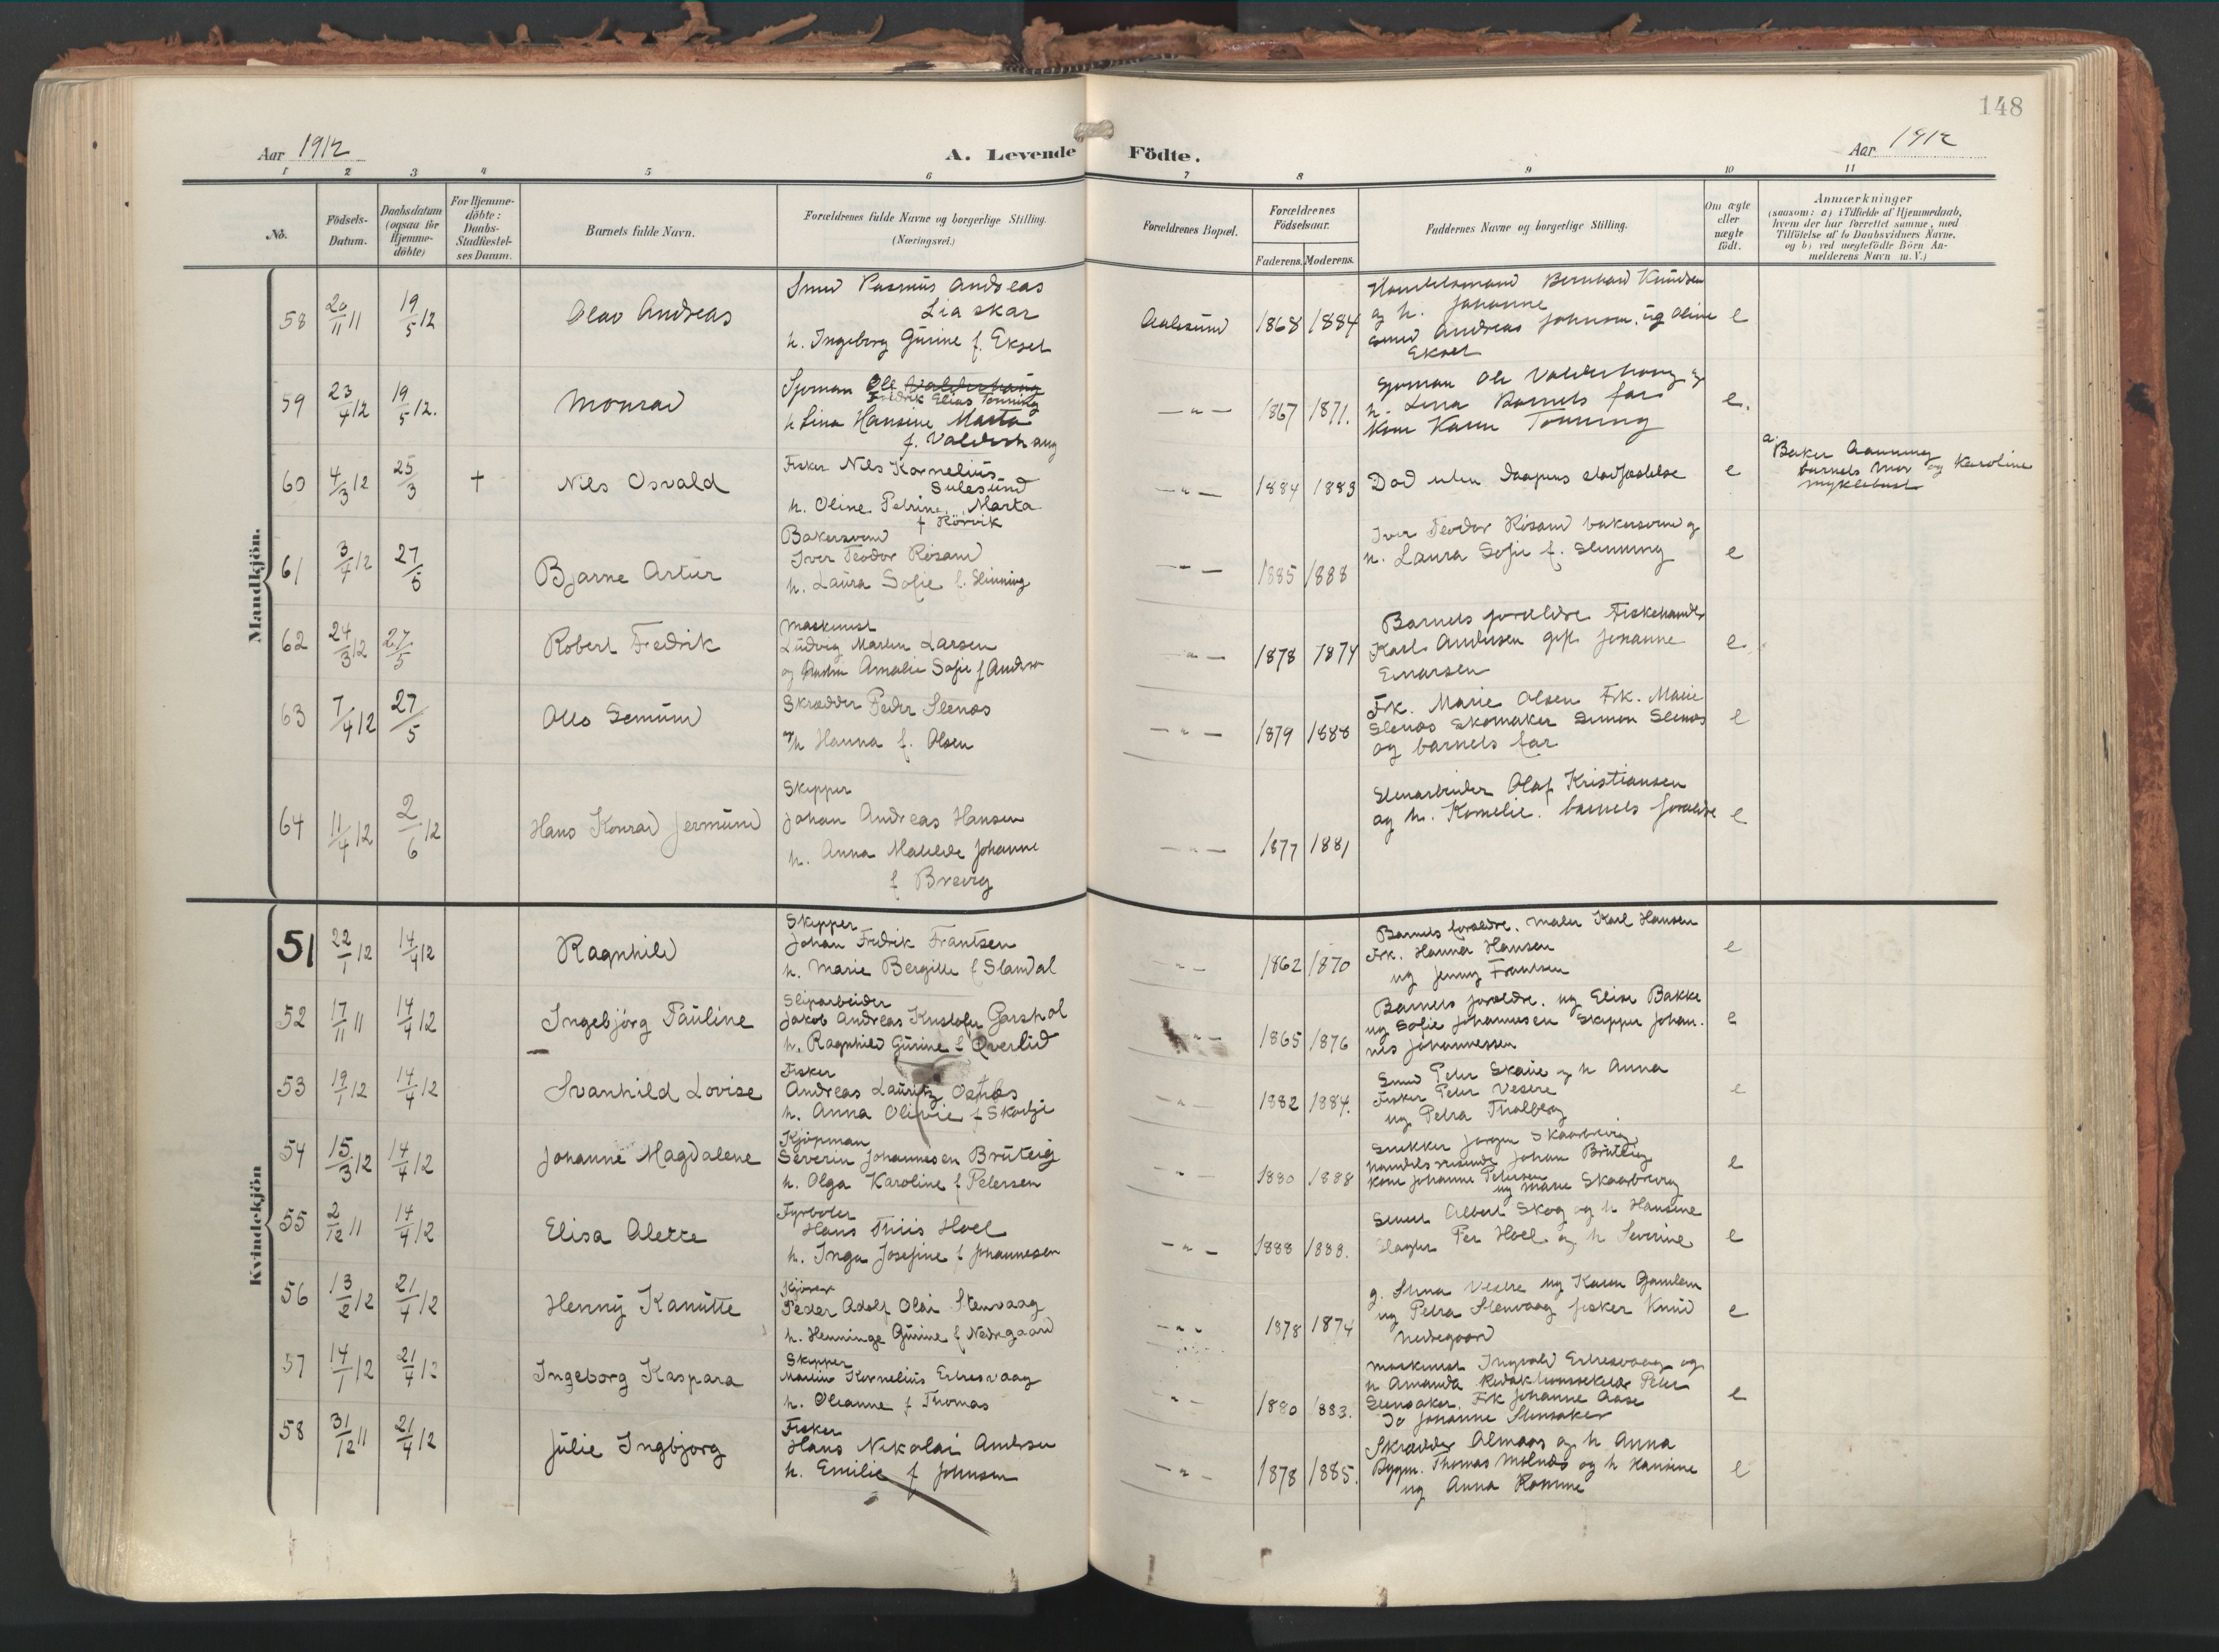 148
Aar 1912
A. Levende Födte.
Aar 1912
1 2 3 4 5 6 7 8 9 10 11
No.
Födsels-
Datum.
Daabsdatum
(ogsaa for
Hjemme-
döbte)
For Hjemme-
döbte:
Daabs-
Stadfæstel-
ses Datum.
Barnets fulde Navn.
Forældrenes fulde Navne og borgerlige Stilling.
(Næringsvei.)
Forældrenes Bopæl.
Forældrenes
Födselsaar.
Faderens. Moderens.
Faddernes Navne og borgerlige Stilling.
Om ægte
eller
uægte
född.
Anmærkninger
(saasom: a) i Tilfælde af Hjemmedaab,
hvem der har forrettet samme, med
Tilföielse af to Daabsvidners Navne.
og b) ved uægtefödte Börn An-
melderens Navn m. V.)
Mandkjön.
58 20/11 11 19/5 12 Olav Andreas
Smed Rasmus Andreas
Liaskar
h. Ingeborg Gurine f. Eksel
Aalesund 1868 1884
Handelsmand Bernhard Knudsen
og h. Johanne
Smed Andreas Johnsen. ug Oline
Eksel
e
59 23/4 12 19/5 12. Monrad
Sjoman Ole Valderhaug
Fredrik Elias Tonning
h Lina Hansine Marta
f. Valderhaug
— " — 1867 1871.
Sjoman Ole Valderhaug og
h. Lina Barnets far
Kone Karen Tonning
e.
60 4/3 12 25/3 + Nils Osvald
Fisker Nils Kornelius
Sulesund
h. Oline Petrine Marta
f Rörvik
— " — 1884 1883
Död uten daapens stadfestelse
e
a. Baker Aanning
barnets mor og Karoline
Myklebust
61 3/4 12 27/5 Bjarne Artur
Bakersvend
Iver Teodor Rösand
h. Laura Sofie f. Slinning
— " — 1885 1888
Iver Teodor Rösand bakersvend og
h. Laura Sofie f. Slinning
e
62 24/3 12 27/5 Robert Fredrik
Maskinist
Ludvig Martin Larsen
og hustru Amalie Sofie f Anders
— " — 1878 1874
Barnets foreldre Fiskehandl
Karl Andersen gift Johanne
Einarsen
e
63 7/4 12 27/5 Otto Semund
Skrædder Peder Stenos
h Hanna f. Olsen
— " — 1879 1888
Frk. Marie Olsen Frk. Marie
Stenos Skomaker Simon Stenos
og barnets far
e
64 11/4 12 2/6 12 Hans Konrad Jermund
Skipper
Johan Andreas Hansen
h. Anna Matilde Johanne
f Breivig
— " — 1877 1881
Stenarbeider Olaf Kristiansen
og h. Kornelie. barnets foreldre
e
Kvindekjön
51 22/1 12 14/4 12 Ragnhild
Skipper
Johan Fredrik Frantsen
h. Marie Bergitte f Slandal
— " — 1862 1870
Barnets foreldre. Maler Karl Hansen
Frk. Hanna Hansen
ug Jenny Frantsen
e
52 17/11 11 14/4 12 Ingebjörg Pauline
Sliparbeider
Jakob Andreas Kristofer Garshol
h. Ragnhild Gurine f Överlid
— " — 1865 1876
Barnets foreldre. ug Elise Bakke
ug Sofie Johannesen Skipper Johan.
nes Johannessen
e
53 19/1 12 14/4 12 Svanhild Lovise
Fisker
Andreas Lauritz Osnes
h. Anna Olivie f Skodje
— " — 1882 1884.
Smed Peter Skaue og h Anna
Fisker Peter Vestre
ug Petra Tholberg
e
54 15/3 12 14/4 12 Johanne Magdalene
Kjöpman
Severin Johannesen Bruteig
h. Olga Karoline f Petersen
— " — 1880 1888
Snekker Jörgen Skaarbrevig
handelsreisende Johan Bruteig
kone Johanne Petersen
ug Marie Skaarbrevig
e
55 2/12 11 14/4 12 Elisa Alette
Fyrböter
Hans Thiis Hoel
h. Inga Josefine f Johannesen
— " — 1888 1888.
Albert Skog og h Hansine
Slagter Per Hoel og h Severine
e
56 13/2 12 21/4 12 Henny Kanutte
Kjörer
Peder Adolf Olai Stenvaag
h. Henninge Gurine f Nedregaard
— " — 1878 1874
g. Stina Vestre ug Karen Gamlem
ug Petra Stenvaag fisker Knud
Nedregaard
e
57 14/1 12 21/4 12 Ingeborg Kaspara
Skipper
Martin Kornelius Ertresvaag
h. Oleanne f Thomas
— " — 1880 1883.
Maskinist Ingvald Ertresvaag og
h Amanda Redaktionssekretær Peter
Stensaker. Frk Johanne Aase
Do Johanne Stensaker
e
58 31/12 11 21/4 12 Julie Ingbjorg
Fisker
Hans Nikolai Andersen
h. Emilie f Johnsen
— " — 1878 1885.
Skrædder Almaas og h Anna
Bygm. Thomas Molnes og h Hansine
ug Anna Romme
e